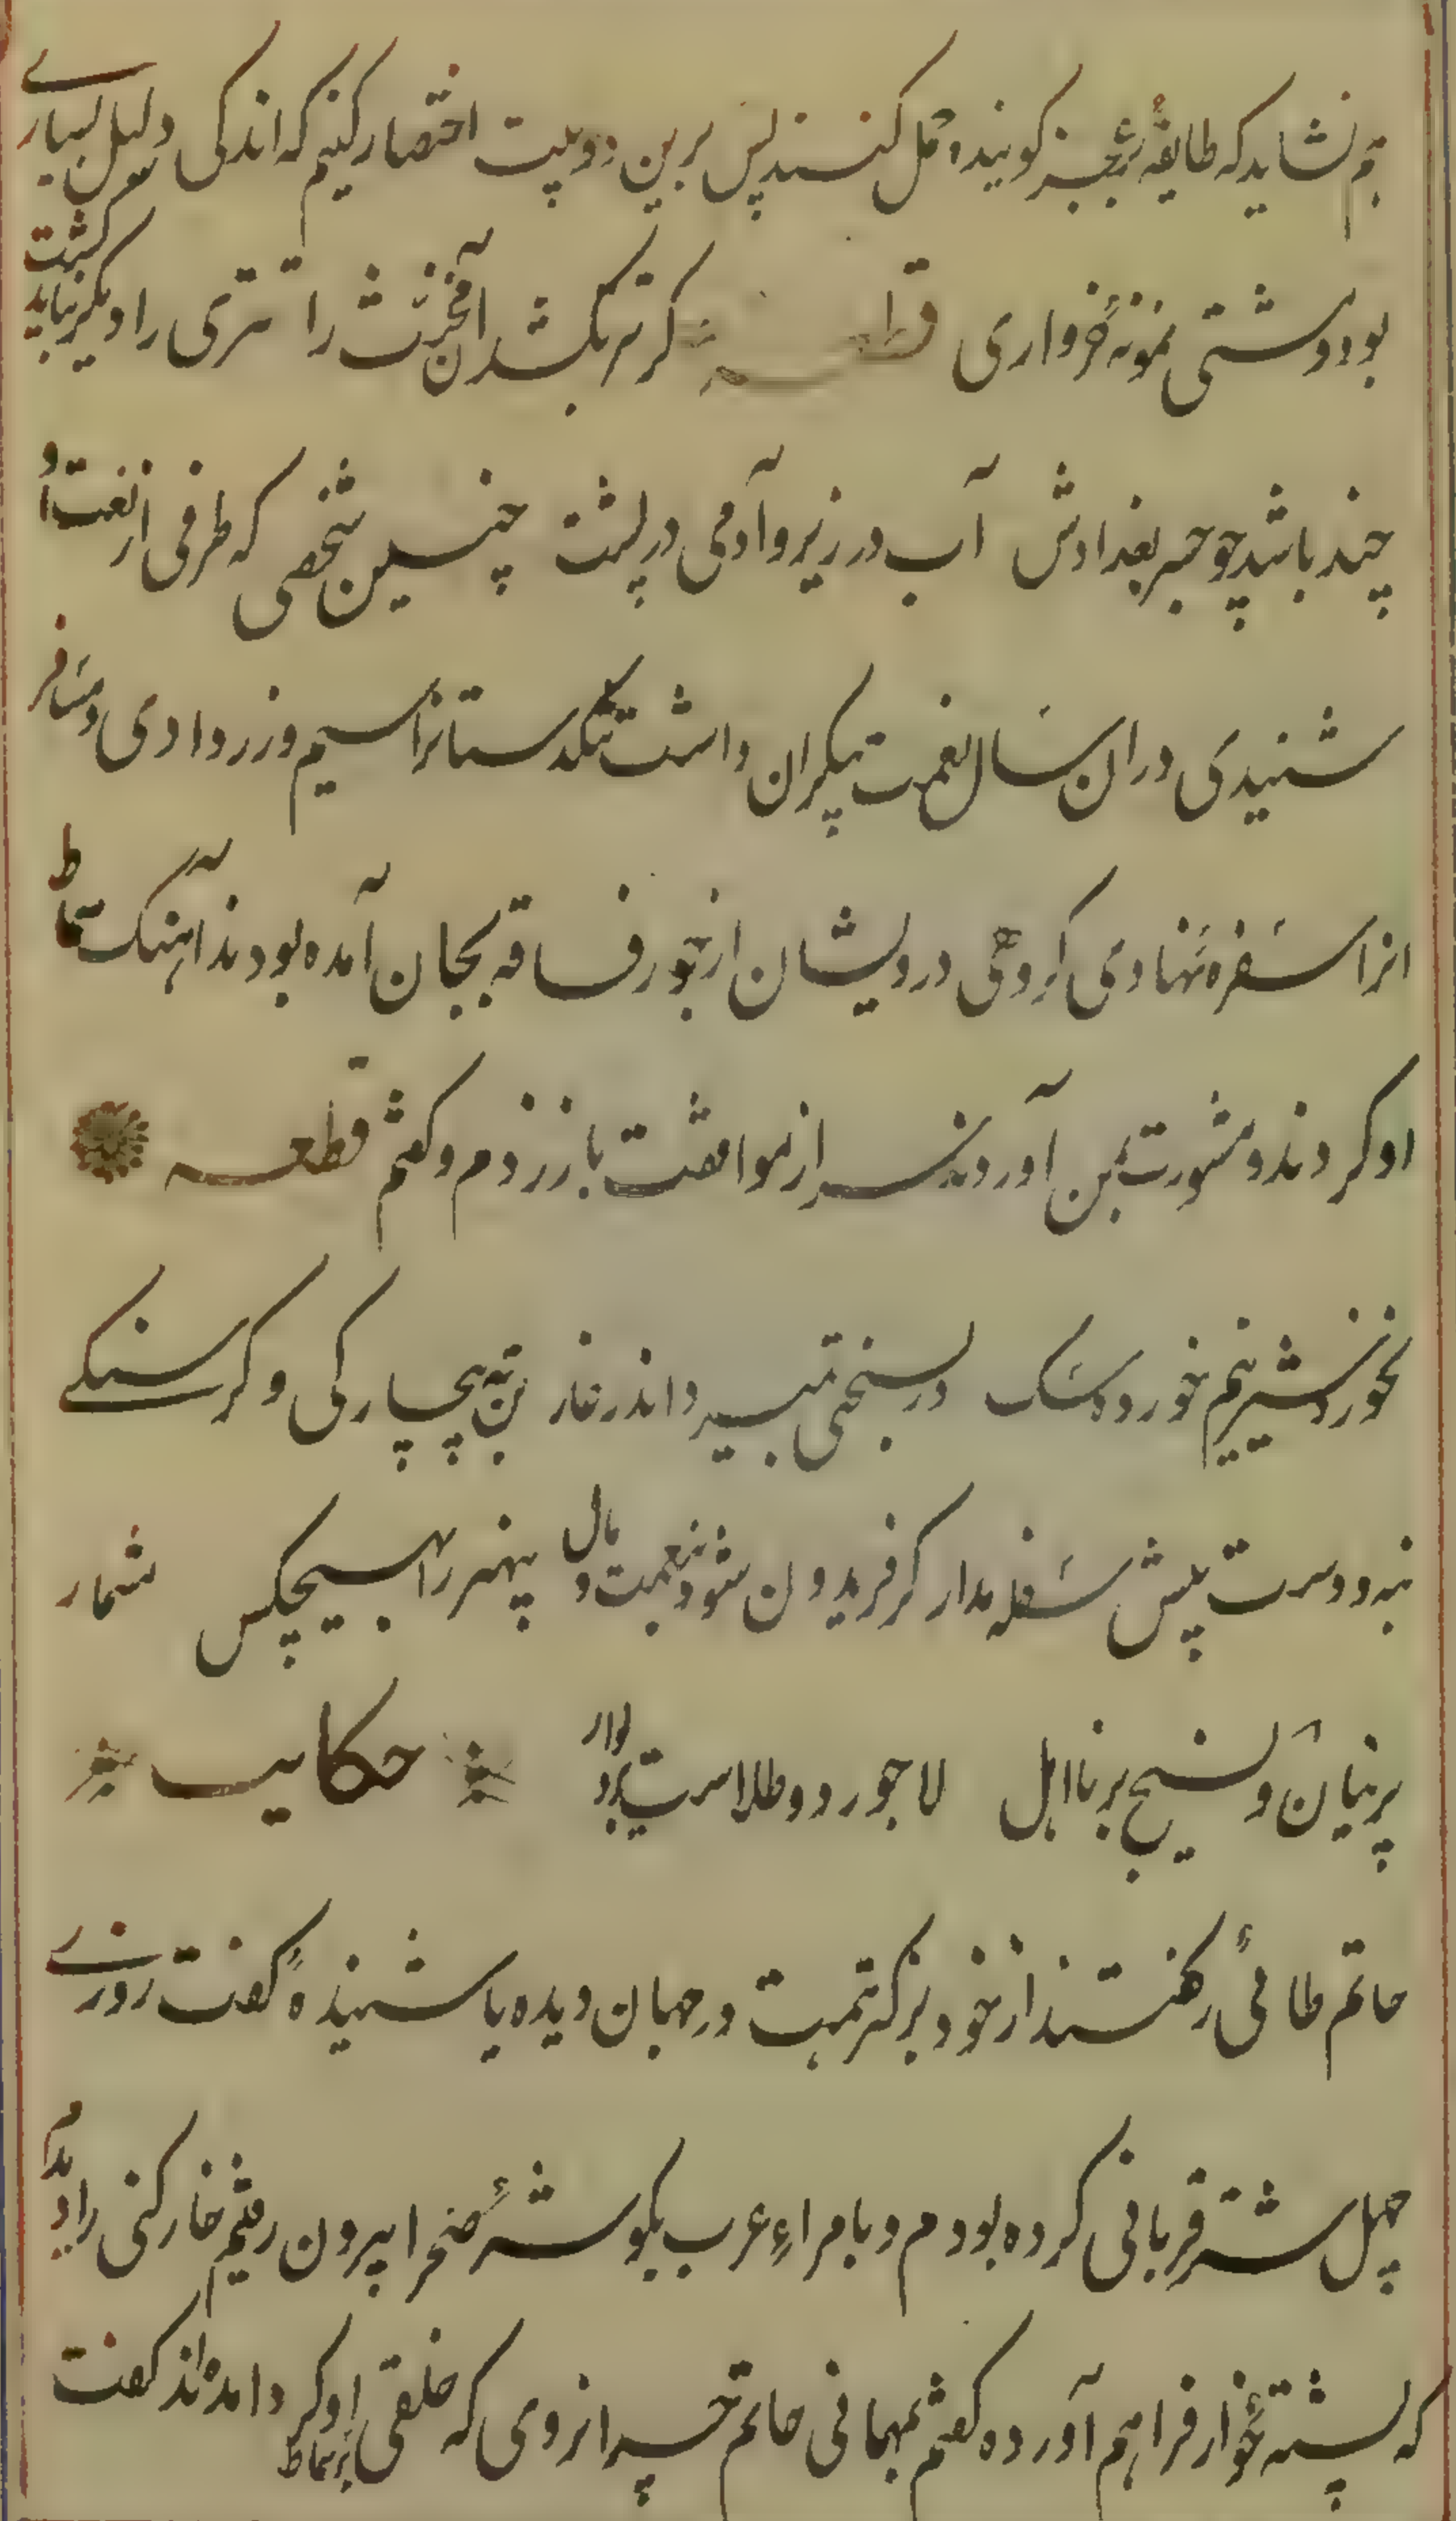 هم نشاید که طایفهٔ بر عجز گویند حمل کنند پس برین دو بیت اختصار کنیم که اندکی دلیل بسیارے
بود و مشتی نمونه خرواری قطعـه کر تتر بکشد آن مخنث را تتری را دیگر نباید کشت
چند باشد چو جسر بغدادش آب در زیر و آدمی در پشت چنین شخصی که طرفی از نعت او
شنیدی در ان سال نعمت بیکران داشت تنکدستانرا سیم و زر دادی و مسافر
انرا سفره نهادی کروهی درویشان از جور فاقه بجان آمده بودند آهنک سماط
او کردند و مشورت بمن آوردند سر از موافقت باز زدم و کفتم قطعـه
نخورد شیر نیم خورده سک ور بسختی بمیرد اندر غار تن به بیچارکی و کرسنکے
بنه و دست پیش سفله مدار کر فریدون شود بنعمت و مال بیهنر را بهیچکس شمار
پرنیان و نسیج بر نااهل لاجورد و طلاست بر دیوار حکایت
حاتم طائی را کفتند از خود بزرکتر همت در جهان دیده یا شنیدهٔ کفت روزے
چهل شتر قربانی کرده بودم و با امراء عرب بکوشهٔ صحرا بیرون رفتم خارکنی را دیدم
که پشته خار فراهم آورده کفتم بمهمانی حاتم چرا نروی که خلقی بر سماط او کرد امده اند کفت